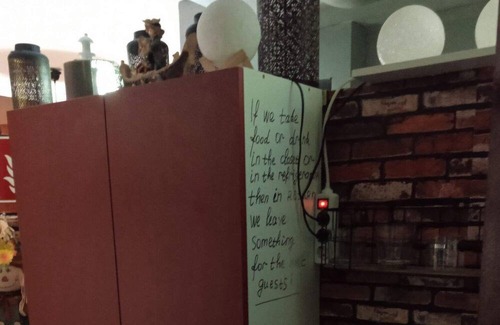 If we take
food or drink
in the closet or
in the refrigerator
then in return
we leave
something
for the next
guests!